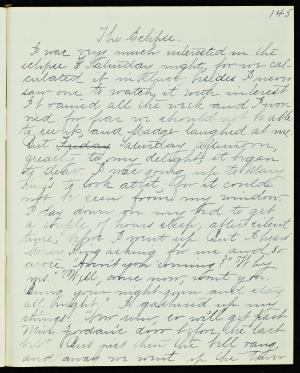 145
The Eclipse.
I was very much interested in the
eclipse of Saturday night, for we cal-
culated it in class besides I never
saw one to watch it with interest
It rained all the week and I wor-
ried for fear we should not be able
to see it, and Madge laughed at me.
But Friday Saturday afternoon,
greatly to my delight it began
to clear. I was going up to Mary
King's to look at it, for it could
not be seen from my window.
I lay down on my bed to get
a couple of hours sleep, after silent
time, before I went up. But I heard
King asking for me and so
"coming?" "Why
yes." "Well, come now, won't you
bring your night-gown and stay
all night." I gathered up my
things. "Now run, or will get past
Miss door before the last
bell" But just then the bell rang,
and away we went up the